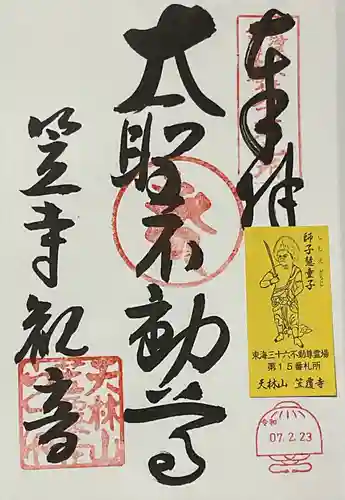 奉拝
大聖不動尊
笠寺観音
師子慧童子
東海三十六不動尊霊場
第15番札所
天林山 笠覆寺
令和
07.2.23